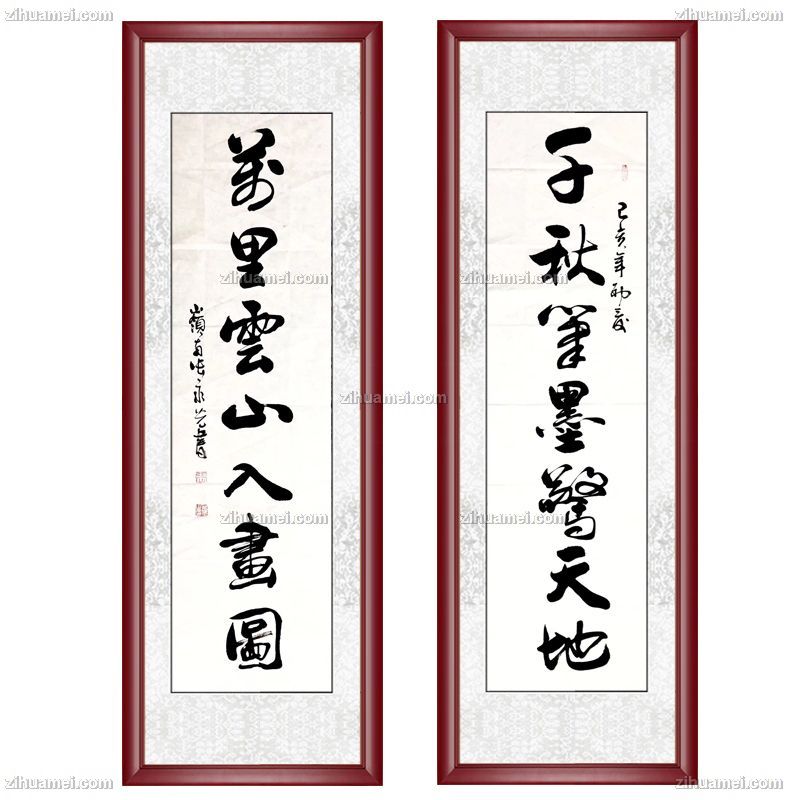 千秋筆墨驚天地
己亥年
萬里雲山入畫圖
嶺南
zihuamei.com
zihuamei.com
zihuamei.com
zihuamei.com
zihuamei.com
zihuamei.com
zihuamei.com
zihuamei.com
zihuamei.com